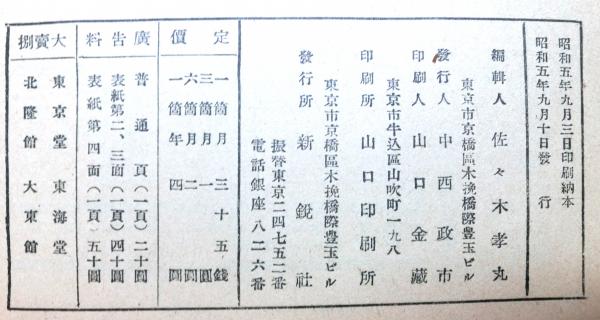 昭和五年九月三日印刷納本
昭和五年九月十日發行
編輯人 佐々木孝丸
東京市京橋區木挽橋際豊玉ビル
發行人 中西政市
印刷人 山口金藏
東京市牛込區山吹町一九八
印刷所 山口印刷所
東京市京橋區木挽橋際豊玉ビル
發行所 新鋭社
振替東京二四七五二番
電話銀座八二六番
定價
一箇月 三十五錢
三箇月 一圓
六箇月 二圓
一箇年 四圓
廣告料
普通頁(一頁)二十圓
表紙第二、三面(一頁)四十圓
表紙第四面(一頁)五十圓
大賣捌
東京堂 東海堂
北隆館 大東館